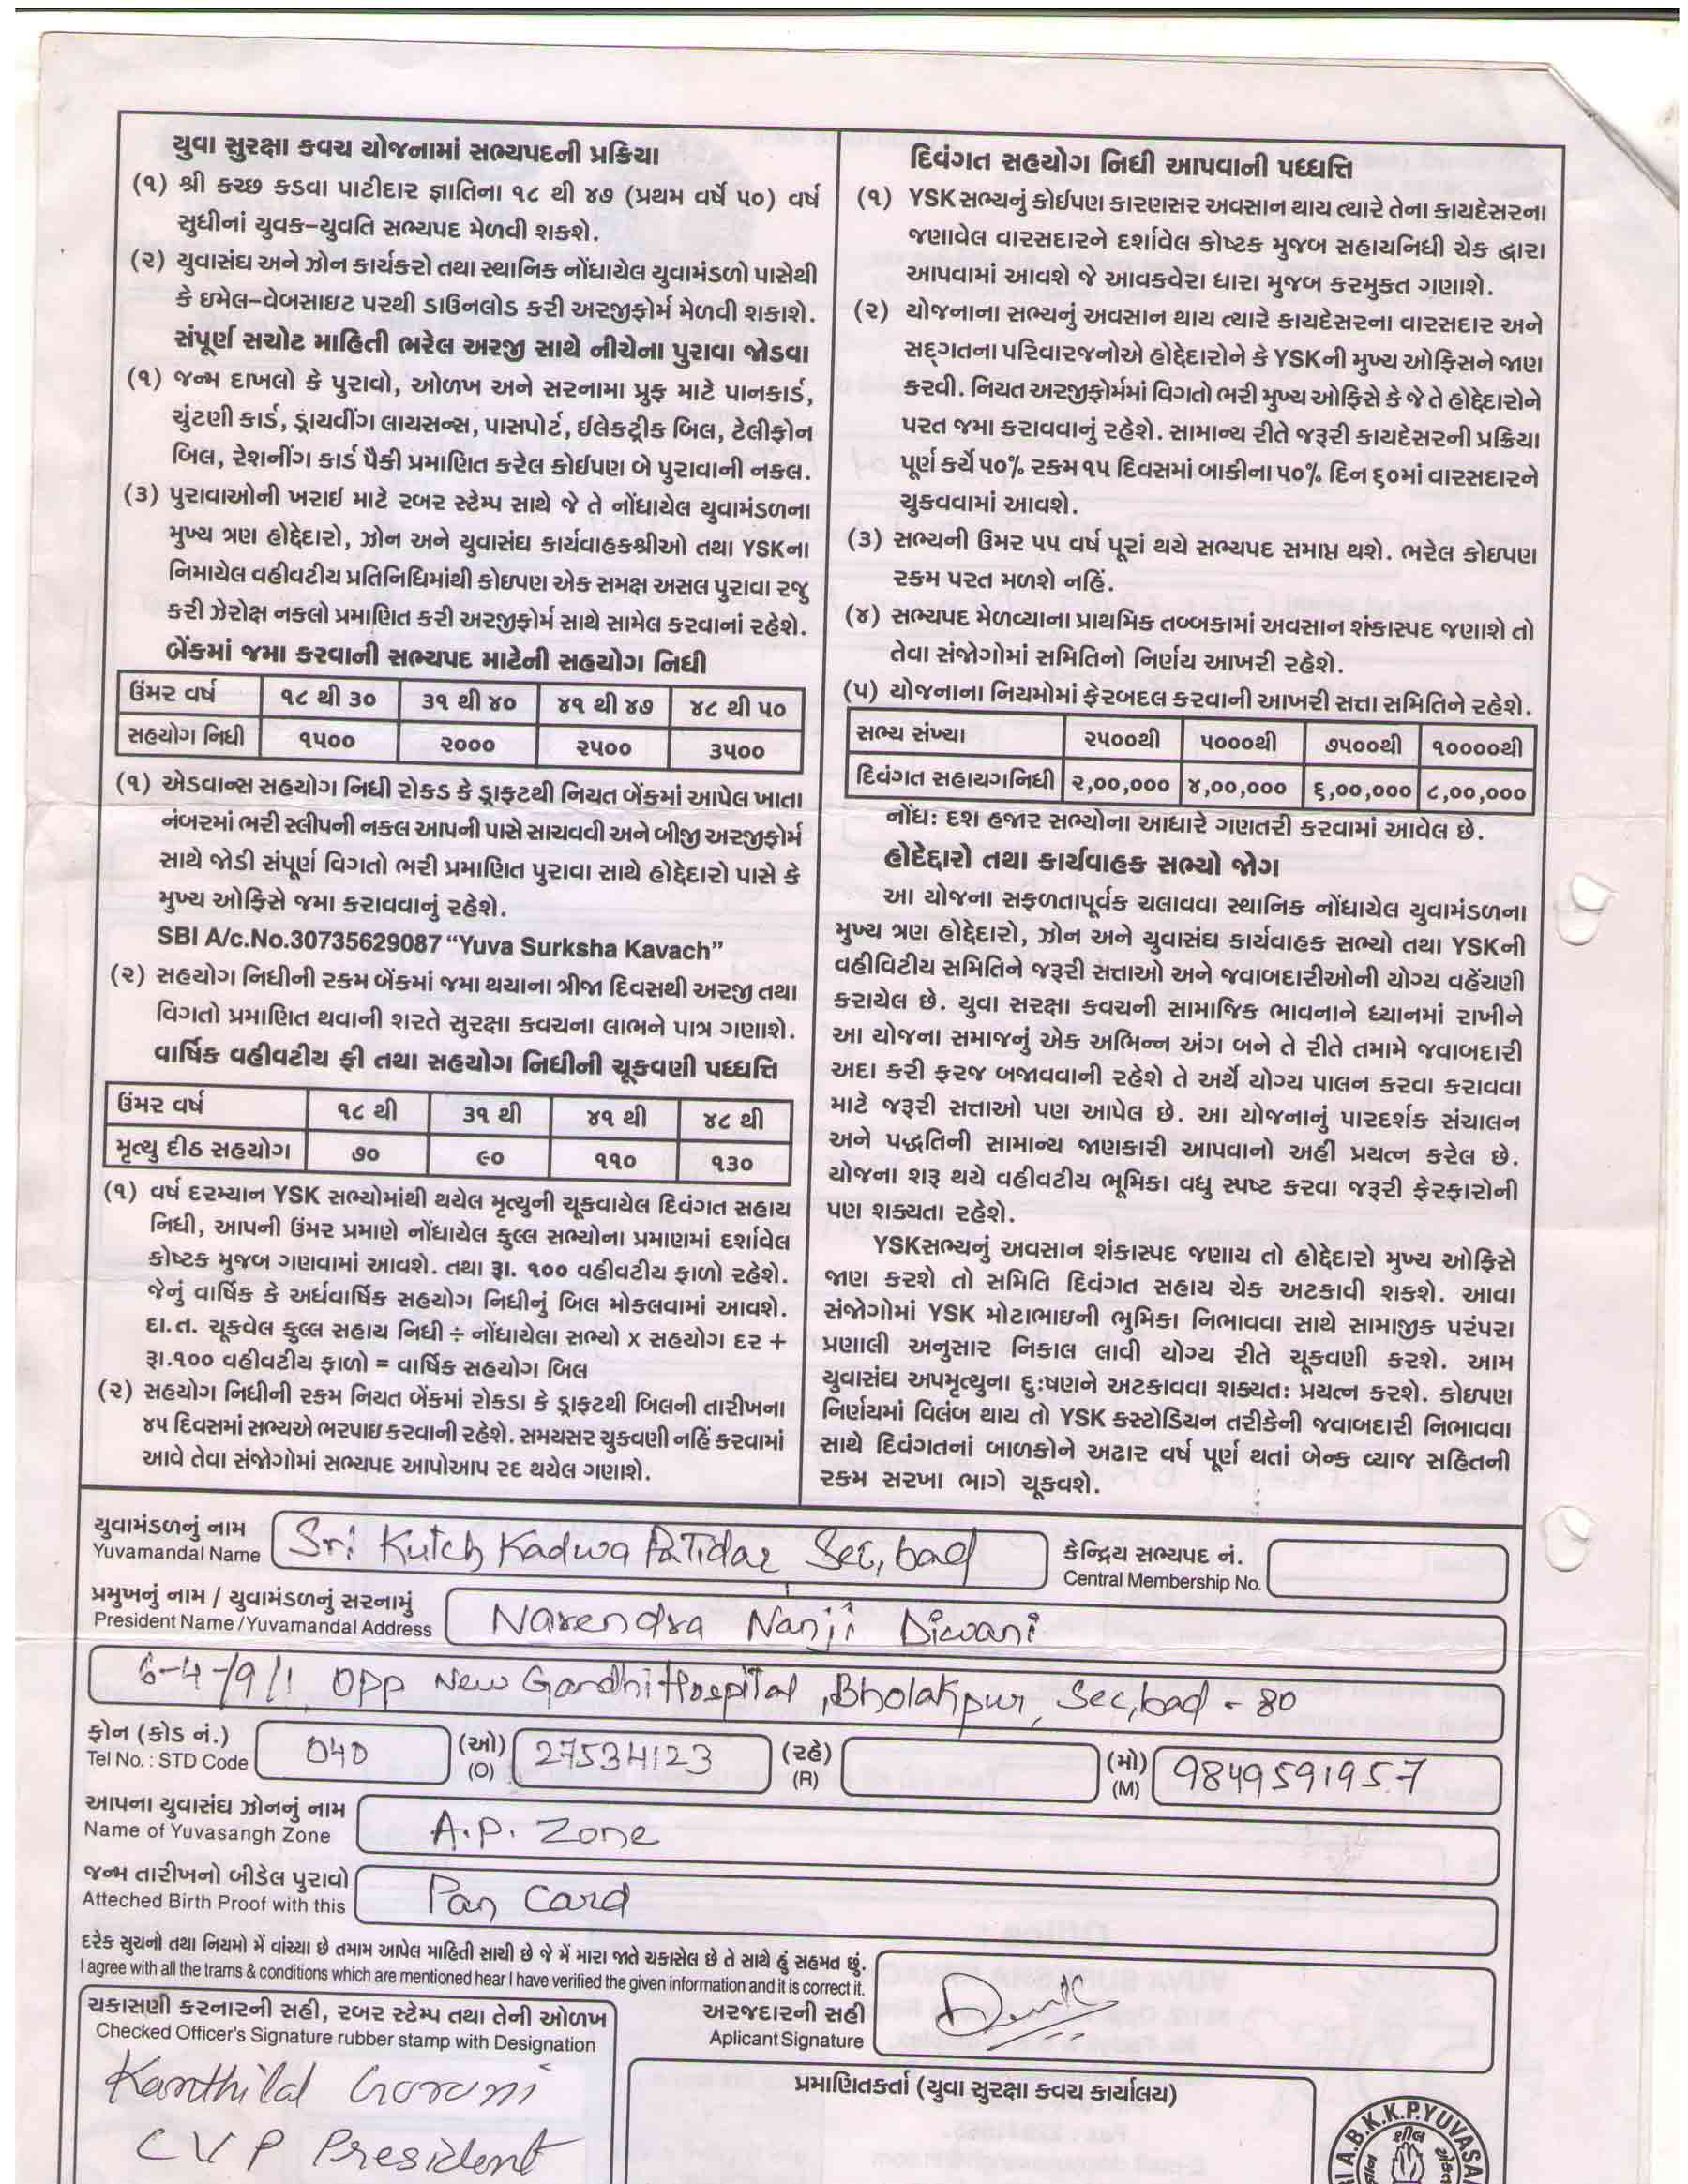 યુવા સુરક્ષા કવચ યોજનામાં સભ્યપદની પ્રક્રિયા
(૧) શ્રી કચ્છ કડવા પાટીદાર જ્ઞાતિના ૧૮ થી ૪૭ (પ્રથમ વર્ષે ૫૦) વર્ષ
સુધીનાં યુવક–યુવતિ સભ્યપદ મેળવી શકશે.
(૨) યુવાસંઘ અને ઝોન કાર્યકરો તથા સ્થાનિક નોંધાયેલ યુવામંડળો પાસેથી
કે ઇમેલ–વેબસાઇટ પરથી ડાઉનલોડ કરી અરજીફોર્મ મેળવી શકાશે.
સંપૂર્ણ સચોટ માહિતી ભરેલ અરજી સાથે નીચેના પુરાવા જોડવા
(૧) જન્મ દાખલો કે પુરાવો, ઓળખ અને સરનામા પ્રુફ માટે પાનકાર્ડ,
ચુંટણી કાર્ડ, ડ્રાયવીંગ લાયસન્સ, પાસપોર્ટ, ઈલેકટ્રીક બિલ, ટેલીફોન
બિલ, રેશનીંગ કાર્ડ પૈકી પ્રમાણિત કરેલ કોઈપણ બે પુરાવાની નકલ.
(૩) પુરાવાઓની ખરાઈ માટે રબર સ્ટેમ્પ સાથે જે તે નોંધાયેલ યુવામંડળના
મુખ્ય ત્રણ હોદ્દેદારો, ઝોન અને યુવાસંઘ કાર્યવાહકશ્રીઓ તથા YSKના
નિમાયેલ વહીવટીય પ્રતિનિધિમાંથી કોઇપણ એક સમક્ષ અસલ પુરાવા રજુ
કરી ઝેરોક્ષ નકલો પ્રમાણિત કરી અરજીફોર્મ સાથે સામેલ કરવાનાં રહેશે.
બેંકમાં જમા કરવાની સભ્યપદ માટેની સહયોગ નિધી
ઉંમર વર્ષ ૧૮ થી ૩૦ ૩૧ થી ૪૦ ૪૧ થી ૪૭ ૪૮ થી ૫૦
સહયોગ નિધી ૧૫૦૦ ૨૦૦૦ ૨૫૦૦ ૩૫૦૦
(૧) એડવાન્સ સહયોગ નિધી રોકડ કે ડ્રાફટથી નિયત બેંકમાં આપેલ ખાતા
નંબરમાં ભરી સ્લીપની નકલ આપની પાસે સાચવવી અને બીજી અરજીફોર્મ
સાથે જોડી સંપૂર્ણ વિગતો ભરી પ્રમાણિત પુરાવા સાથે હોદ્દેદારો પાસે કે
મુખ્ય ઓફિસે જમા કરાવવાનું રહેશે.
SBI A/c.No.30735629087 “Yuva Surksha Kavach”
(૨) સહયોગ નિધીની રકમ બેંકમાં જમા થયાના ત્રીજા દિવસથી અરજી તથા
વિગતો પ્રમાણિત થવાની શરતે સુરક્ષા કવચના લાભને પાત્ર ગણાશે.
વાર્ષિક વહીવટીય ફી તથા સહયોગ નિધીની ચૂકવણી પધ્ધત્તિ
ઉંમર વર્ષ ૧૮ થી ૩૧ થી ૪૧ થી ૪૮ થી
મૃત્યુ દીઠ સહયોગ ૭૦ ૯૦ ૧૧૦ ૧૩૦
(૧) વર્ષ દરમ્યાન YSK સભ્યોમાંથી થયેલ મૃત્યુની ચૂકવાયેલ દિવંગત સહાય
નિધી, આપની ઉંમર પ્રમાણે નોંધાયેલ કુલ્લ સભ્યોના પ્રમાણમાં દર્શાવેલ
કોષ્ટક મુજબ ગણવામાં આવશે. તથા રૂા. ૧૦૦ વહીવટીય ફાળો રહેશે.
જેનું વાર્ષિક કે અર્ધવાર્ષિક સહયોગ નિધીનું બિલ મોકલવામાં આવશે.
દા.ત. ચૂકવેલ કુલ્લ સહાય નિધી ÷ નોંધાયેલા સભ્યો x સહયોગ દર +
રૂા.૧૦૦ વહીવટીય ફાળો = વાર્ષિક સહયોગ બિલ
(૨) સહયોગ નિધીની રકમ નિયત બેંકમાં રોકડા કે ડ્રાફટથી બિલની તારીખના
૪૫ દિવસમાં સભ્યએ ભરપાઇ કરવાની રહેશે. સમયસર ચુકવણી નહિં કરવામાં
આવે તેવા સંજોગોમાં સભ્યપદ આપોઆપ રદ થયેલ ગણાશે.
દિવંગત સહયોગ નિધી આપવાની પધ્ધત્તિ
(૧) YSK સભ્યનું કોઈપણ કારણસર અવસાન થાય ત્યારે તેના કાયદેસરના
જણાવેલ વારસદારને દર્શાવેલ કોષ્ટક મુજબ સહાયનિધી ચેક દ્વારા
આપવામાં આવશે જે આવકવેરા ધારા મુજબ કરમુકત ગણાશે.
(૨) યોજનાના સભ્યનું અવસાન થાય ત્યારે કાયદેસરના વારસદાર અને
સદ્દગતના પરિવારજનોએ હોદ્દેદારોને કે YSKની મુખ્ય ઓફિસને જાણ
કરવી. નિયત અરજીફોર્મમાં વિગતો ભરી મુખ્ય ઓફિસે કે જે તે હોદ્દેદારોને
પરત જમા કરાવવાનું રહેશે. સામાન્ય રીતે જરૂરી કાયદેસરની પ્રક્રિયા
પૂર્ણ કર્યે ૫૦% રકમ ૧૫ દિવસમાં બાકીના ૫૦% દિન ૬૦માં વારસદારને
ચુકવવામાં આવશે.
(૩) સભ્યની ઉમર ૫૫ વર્ષ પૂરાં થયે સભ્યપદ સમાપ્ત થશે. ભરેલ કોઇપણ
રકમ પરત મળશે નહિં.
(૪) સભ્યપદ મેળવ્યાના પ્રાથમિક તબ્બકામાં અવસાન શંકાસ્પદ જણાશે તો
તેવા સંજોગોમાં સમિતિનો નિર્ણય આખરી રહેશે.
(૫) યોજનાના નિયમોમાં ફેરબદલ કરવાની આખરી સત્તા સમિતિને રહેશે.
સભ્ય સંખ્યા ૨૫૦૦થી ૫૦૦૦થી ૭૫૦૦થી ૧૦૦૦૦થી
દિવંગત સહાયગનિધી ૨,૦૦,૦૦૦ ૪,૦૦,૦૦૦ ૬,૦૦,૦૦૦ ૮,૦૦,૦૦૦
નોંધ: દશ હજાર સભ્યોના આધારે ગણતરી કરવામાં આવેલ છે.
હોદેદ્દારો તથા કાર્યવાહક સભ્યો જોગ
આ યોજના સફળતાપૂર્વક ચલાવવા સ્થાનિક નોંધાયેલ યુવામંડળના
મુખ્ય ત્રણ હોદ્દેદારો, ઝોન અને યુવાસંઘ કાર્યવાહક સભ્યો તથા YSKની
વહીવિટીય સમિતિને જરૂરી સત્તાઓ અને જવાબદારીઓની યોગ્ય વહેંચણી
કરાયેલ છે. યુવા સરક્ષા કવચની સામાજિક ભાવનાને ધ્યાનમાં રાખીને
આ યોજના સમાજનું એક અભિન્ન અંગ બને તે રીતે તમામે જવાબદારી
અદા કરી ફરજ બજાવવાની રહેશે તે અર્થે યોગ્ય પાલન કરવા કરાવવા
માટે જરૂરી સત્તાઓ પણ આપેલ છે. આ યોજનાનું પારદર્શક સંચાલન
અને પદ્ધતિની સામાન્ય જાણકારી આપવાનો અહીં પ્રયત્ન કરેલ છે.
યોજના શરૂ થયે વહીવટીય ભૂમિકા વધુ સ્પષ્ટ કરવા જરૂરી ફેરફારોની
પણ શક્યતા રહેશે.
YSKસભ્યનું અવસાન શંકાસ્પદ જણાય તો હોદ્દેદારો મુખ્ય ઓફિસે
જાણ કરશે તો સમિતિ દિવંગત સહાય ચેક અટકાવી શકશે. આવા
સંજોગોમાં YSK મોટાભાઇની ભુમિકા નિભાવવા સાથે સામાજીક પરંપરા
પ્રણાલી અનુસાર નિકાલ લાવી યોગ્ય રીતે ચૂકવણી કરશે. આમ
યુવાસંઘ અપમૃત્યુના દુઃષણને અટકાવવા શક્યતઃ પ્રયત્ન કરશે. કોઇપણ
નિર્ણયમાં વિલંબ થાય તો YSK કસ્ટોડિયન તરીકેની જવાબદારી નિભાવવા
સાથે દિવંગતનાં બાળકોને અઢાર વર્ષ પૂર્ણ થતાં બેન્ક વ્યાજ સહિતની
રકમ સરખા ભાગે ચૂકવશે.
યુવામંડળનું નામ
Yuvamandal Name Sri Kutch Kadwa Patidar Sec,bad
કેન્દ્રિય સભ્યપદ નં.
Central Membership No.
પ્રમુખનું નામ / યુવામંડળનું સરનામું
President Name /Yuvamandal Address Narendra Nanji Diwani
6-4-/9/1 Opp New Gandhi Hospital, Bholakpur, Sec,bad - 80
ફોન (કોડ નં.) (ઓ) (રહે) (મો)
Tel No. : STD Code 040 (O) 27534123 (R) (M) 9849591957
આપના યુવાસંઘ ઝોનનું નામ
Name of Yuvasangh Zone A.P. Zone
જન્મ તારીખનો બીડેલ પુરાવો
Atteched Birth Proof with this Pan Card
દરેક સુચનો તથા નિયમો મેં વાંચ્યા છે તમામ આપેલ માહિતી સાચી છે જે મેં મારા જાતે ચકાસેલ છે તે સાથે હું સહમત છું.
I agree with all the trams & conditions which are mentioned hear I have verified the given information and it is correct it.
ચકાસણી કરનારની સહી, રબર સ્ટેમ્પ તથા તેની ઓળખ
Checked Officer's Signature rubber stamp with Designation
અરજદારની સહી
Aplicant Signature
Kanthilal Gorani
CVP President
પ્રમાણિતકર્તા (યુવા સુરક્ષા કવચ કાર્યાલય)
A.B.K.K.P.YUVASA
શીલ